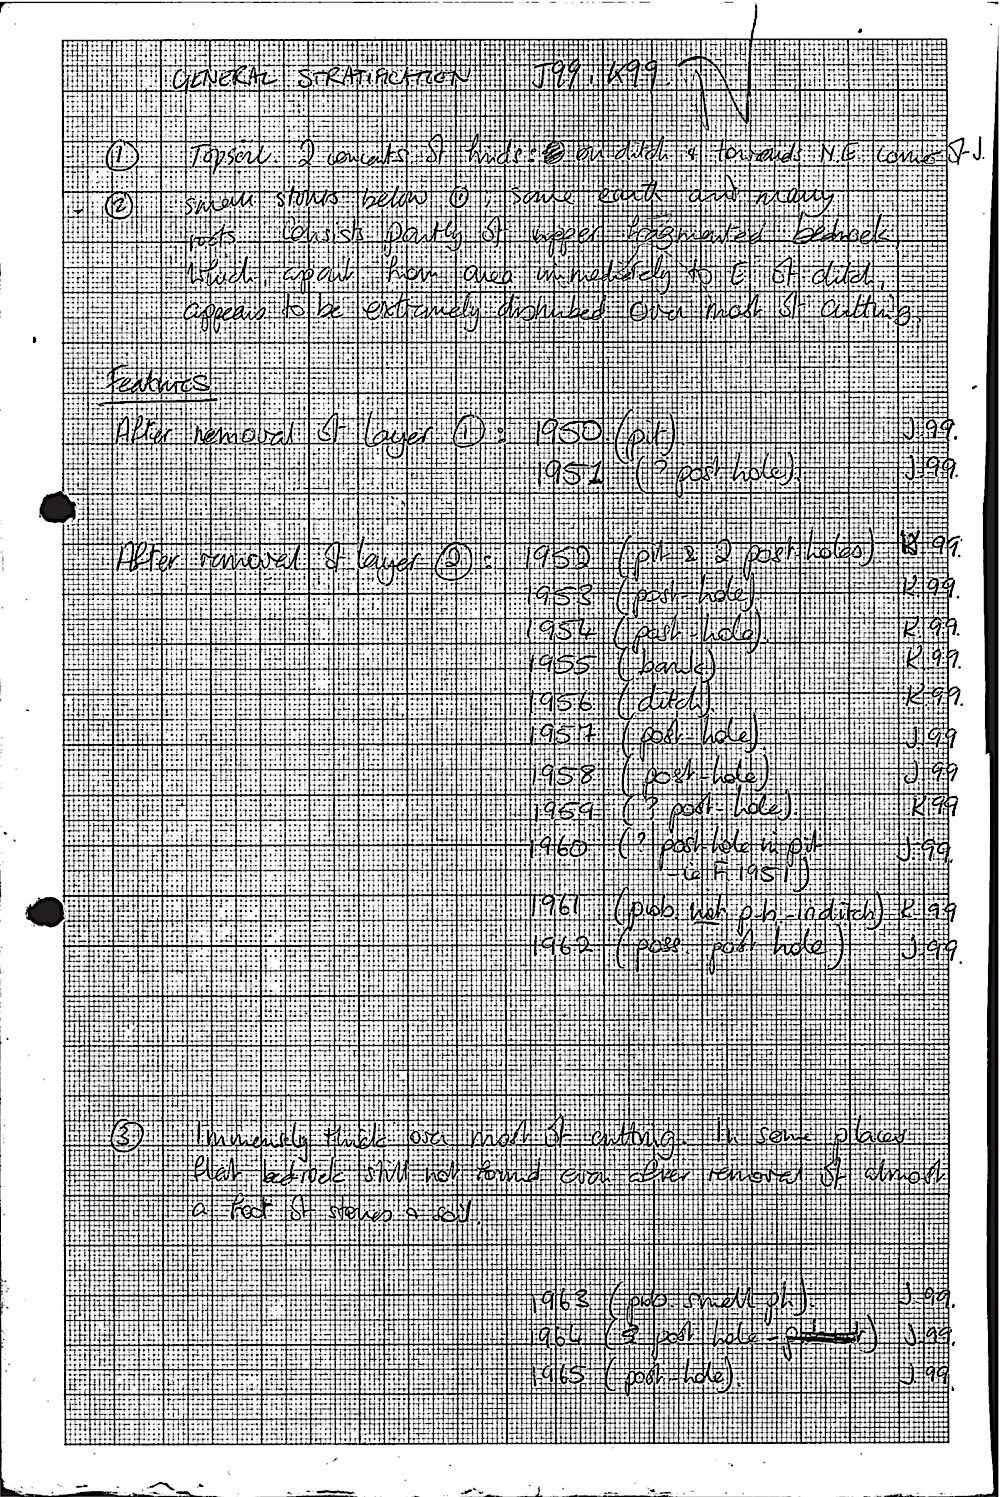 GENERAL STRATIFICATION J99, K99.
① Topsoil. 2 concents of finds: on ditch & towards N.E. corner of J.
② small stones below ①; some earth and many
roots. Consists partly of upper fragmented bedrock
which, apart from area immediately to E of ditch,
appears to be extremely disturbed over most of cutting.
Features
After removal of layer ①: 1950 (pit) J.99.
1951 (? post hole). J.99.
After removal of layer ②: 1952 (pit & 2 post-holes) K 99.
1953 (post-hole) K.99.
1954 (post-hole). K.99.
1955 (bank) K.99.
1956 (ditch). K.99.
1957 (post-hole) J.99
1958 (post-hole) J.99
1959 (? post-hole). K99
1960 (? post-hole in pit J.99.
- ie F.1951)
1961 (prob. not p.h. - in ditch) K 99
1962 (poss. post hole) J.99.
③ Immensely thick over most of cutting. In some places
flat bedrock still not found even after removal of almost
a foot of stones & soil.
1963 (prob. small ph). J.99.
1964 (post hole - ) J.99.
1965 (post-hole). J.99.